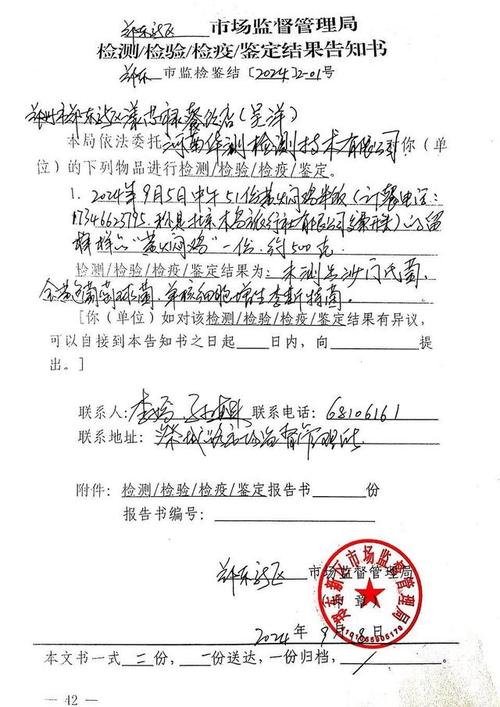 郑东新区 市场监督管理局
检测/检验/检疫/鉴定结果告知书
郑东 市监检鉴结〔2024〕2-01号
郑州市郑东新区 餐饮店(吴洋)
本局依法委托 河南华测检测技术有限公司 你(单
位)的下列物品进行检测/检验/检疫/鉴定。
1. 2024年9月5日中午51份黄焖鸡米饭(订餐电话:
旅行社有限公司 )的留
样样品"黄焖鸡"一份,约500克
检测/检验/检疫/鉴定结果为: 未测出沙门氏菌,
金黄色葡萄球菌,单核细胞增生李斯特菌。
[你(单位)如对该检测/检验/检疫/鉴定结果有异议,
可以自接到本告知书之日起 日内,向 提
出。]
联系人: 联系电话: 68106161
联系地址: 市场监督管理所
附件:检测/检验/检疫/鉴定报告书 份
报告书编号:
郑东新区 市场监督管理局
2024年9月9日
本文书一式 二 份, 一 份送达,一份归档,
— 42 —